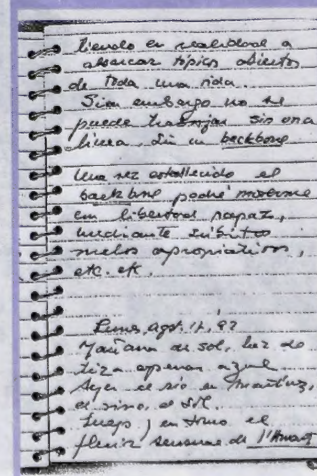 tiendo en realidad a
abarcar tópicos abiertos
de toda una vida.
Sin embargo no se
puede trabajar sin una
línea, sin un backbone
Una vez establecido el
backbone podré moverme
con libertad rapaz,
mediante súbitos
vuelos apropiativos,
etc. etc.
Lunes, agst. 17, 92
Mañana de sol, luz de
tiza apenas azul
Ayer el río en Martínez,
el sino, el Sil.
Luego, en torno el
fluir semanal de l'Amart